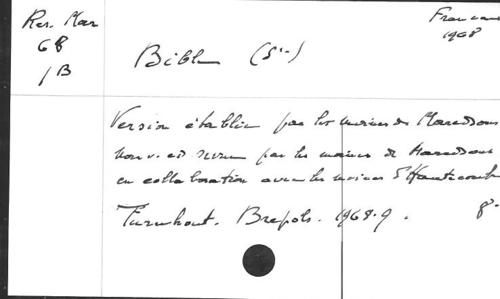 Res. Mar
68
/B
Français
1968
Bible (Ste)
Version établie par les moines de Maredsous
nouv. éd. revue par les moines de Maredsous
en collaboration avec les moines d'Hautecombe
Turnhout. Brepols. 1968. 9.
8°